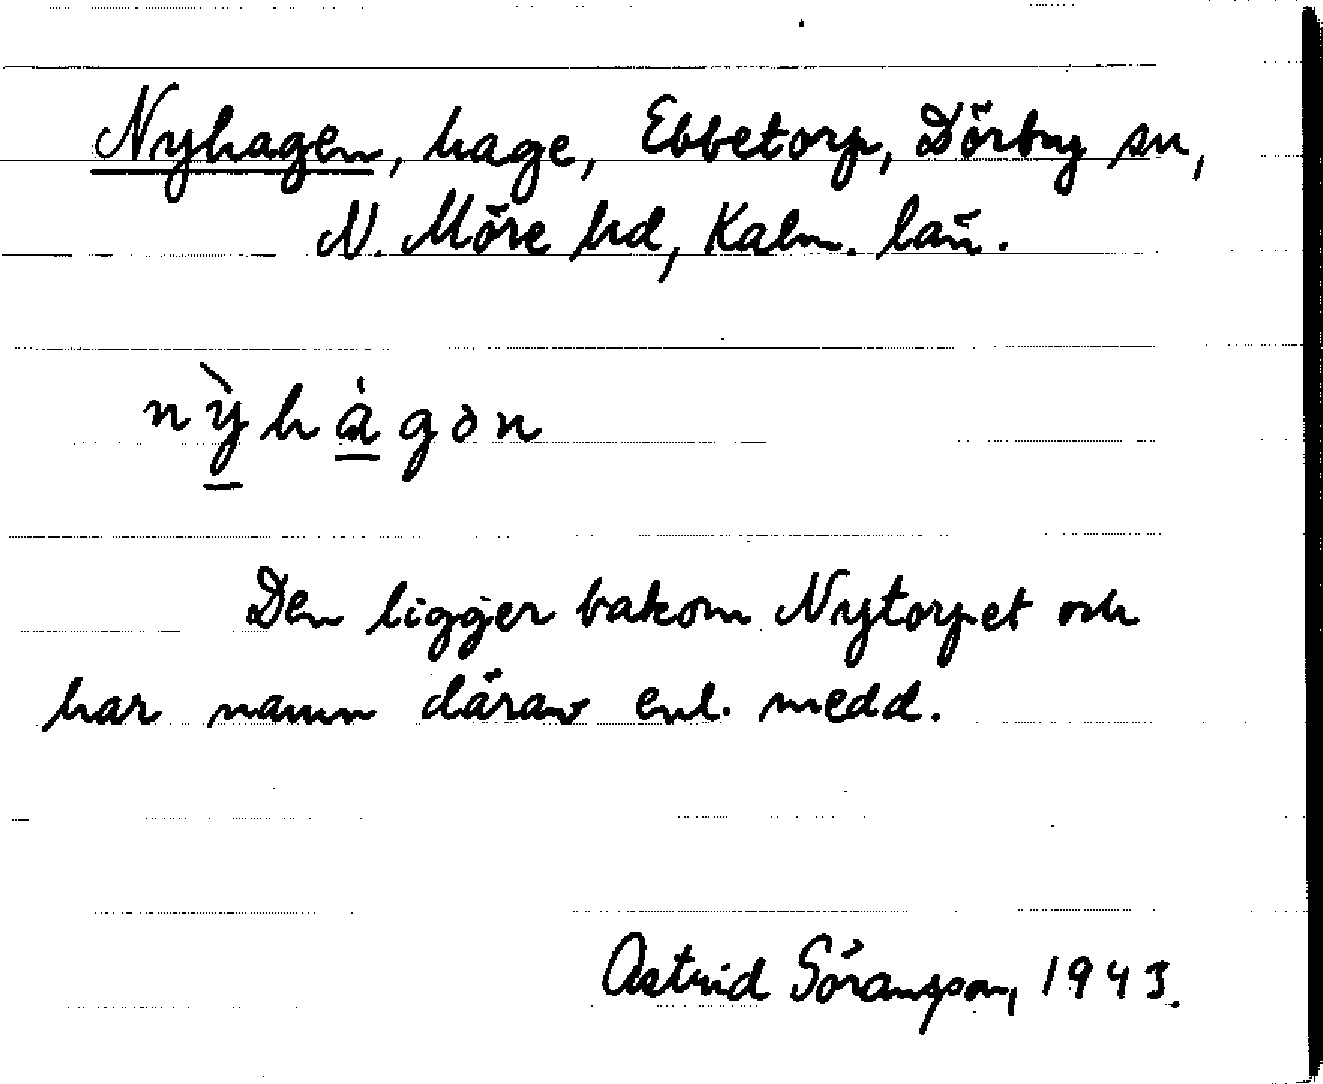 Nyhagen, hage, Ebbetorp, Dörby sn,
N. Möre hd, Kalm. län.
nỳhàgən
Den ligger bakom Nytorpet och
har namn därav enl. medd.
Astrid Göransson, 1943.